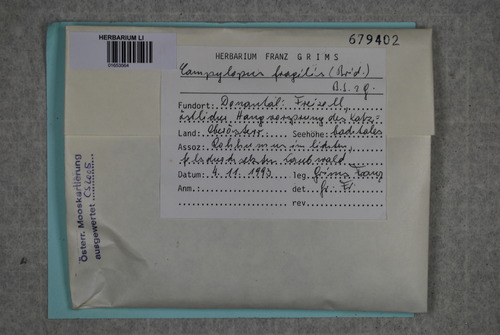 HERBARIUM LI
679402
HERBARIUM FRANZ GRIMS
Campylopus fragilis (Brid.)
B.S.G.
Fundort: Donautal: Freizell,
östlicher Hangvorsprung des
Land: Oberösterr. Seehöhe:
Assoz: Rohhumus im lichten,
Laubwald
Datum: 4.11.1993 leg. Grims Franz
Anm.: det.
rev.
Österr. Mooskartierung
ausgewertet